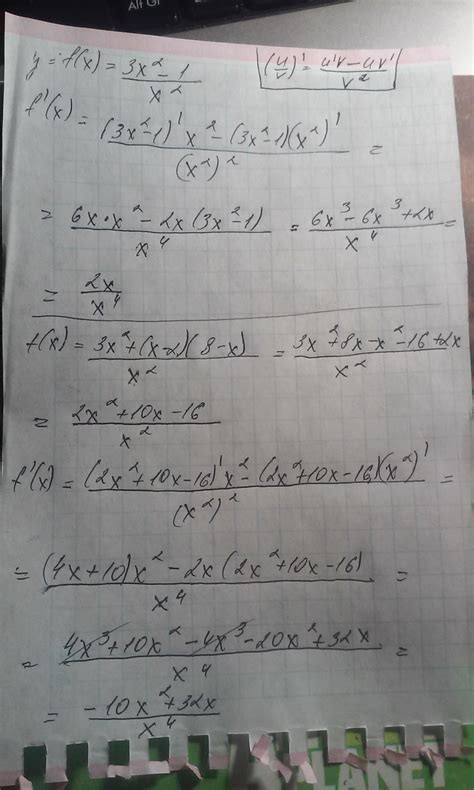 Alt Gr
y = f(x) = (3x² - 1)/x²    (u/v)' = (u'v - uv')/v²
f'(x) = ((3x² - 1)' x² - (3x² - 1)(x²)')/(x²)² =
= (6x · x² - 2x(3x² - 1))/x⁴ = (6x³ - 6x³ + 2x)/x⁴ =
= 2x/x⁴
f(x) = (3x² + (x - 2)(8 - x))/x² = (3x² + 8x - x² - 16 + 2x)/x²
= (2x² + 10x - 16)/x²
f'(x) = ((2x² + 10x - 16)' x² - (2x² + 10x - 16)(x²)')/(x²)² =
= ((4x + 10)x² - 2x(2x² + 10x - 16))/x⁴ =
= (4x³ + 10x² - 4x³ - 20x² + 32x)/x⁴ =
= (-10x² + 32x)/x⁴
PLANET